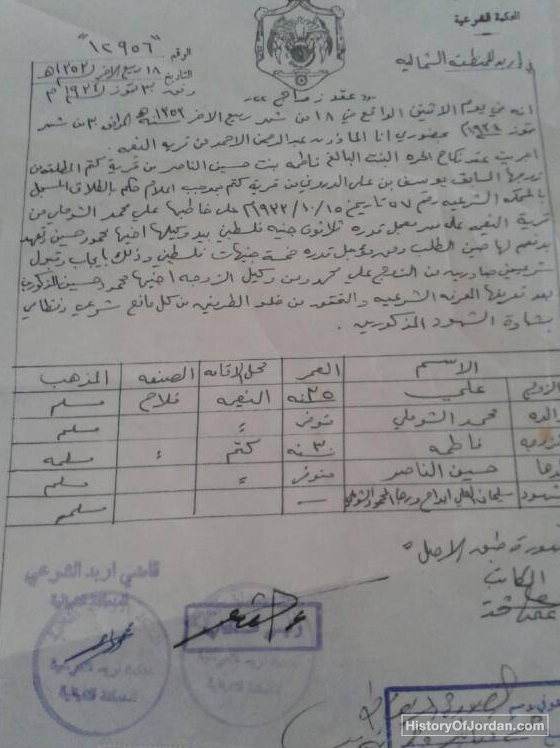 المحكمة الشرعية
في اربد للمنطقه الشماليه
الرقم "١٢٩٥٦"
التاريخ ١٨ ربيع الاخر ١٣٥٣ هـ
٣٠ تموز ١٩٣٤ م
عقد زواج
انه في يوم الاثنين الواقع في ١٨ من شهر ربيع الاخر سنة ١٣٥٣ هـ الموافق ٣٠ من شهر
تموز ١٩٣٤ م بحضوري انا المأذون عبدالرحمن الاحمد من قرية النعيمه
اجريت عقد نكاح الحره البالغ فاطمه بنت حسين الناصر من قرية كتم المطلقه من
زوجها السابق يوسف بن علي من قرية كتم بموجب اعلام حكم بالطلاق المسجل
بالمحكمه الشرعيه رقم ٥٧ تاريخ ١٥/١٠/١٩٣٣ على خاطبها علي محمد الشوملي من
قرية النعيمه على مهر معجل قدره ثلاثون جنيه فلسطيني بيد وكيلها اخيها محمود حسين تعهد
بدفعه لها حين الطلب ومهر مؤجل قدره خمسة جنيهات فلسطيني وذلك بايجاب وقبول
شرعيين صادرين من الزوج علي محمد ومن وكيل الزوجه اخيها محمود حسين المذكورين
بعد تعريفها المعرفه الشرعيه والتحقق من خلو الطرفين من كل مانع شرعي ونظامي
بشهادة الشهود المذكورين .
الاسم العمر محل الاقامه الصنعه المذهب
الزوج علي ٢٥ سنه النعيمه فلاح مسلم
والده محمد الشوملي متوفى " مسلم
الزوجه فاطمه ٣٠ سنه كتم " مسلمه
والدها حسين الناصر متوفى " مسلم
الشهود سليمان العلي — مسلمين
صورة طبق الاصل
الكاتب
قاضي اربد الشرعي
HistoryOfJordan.com